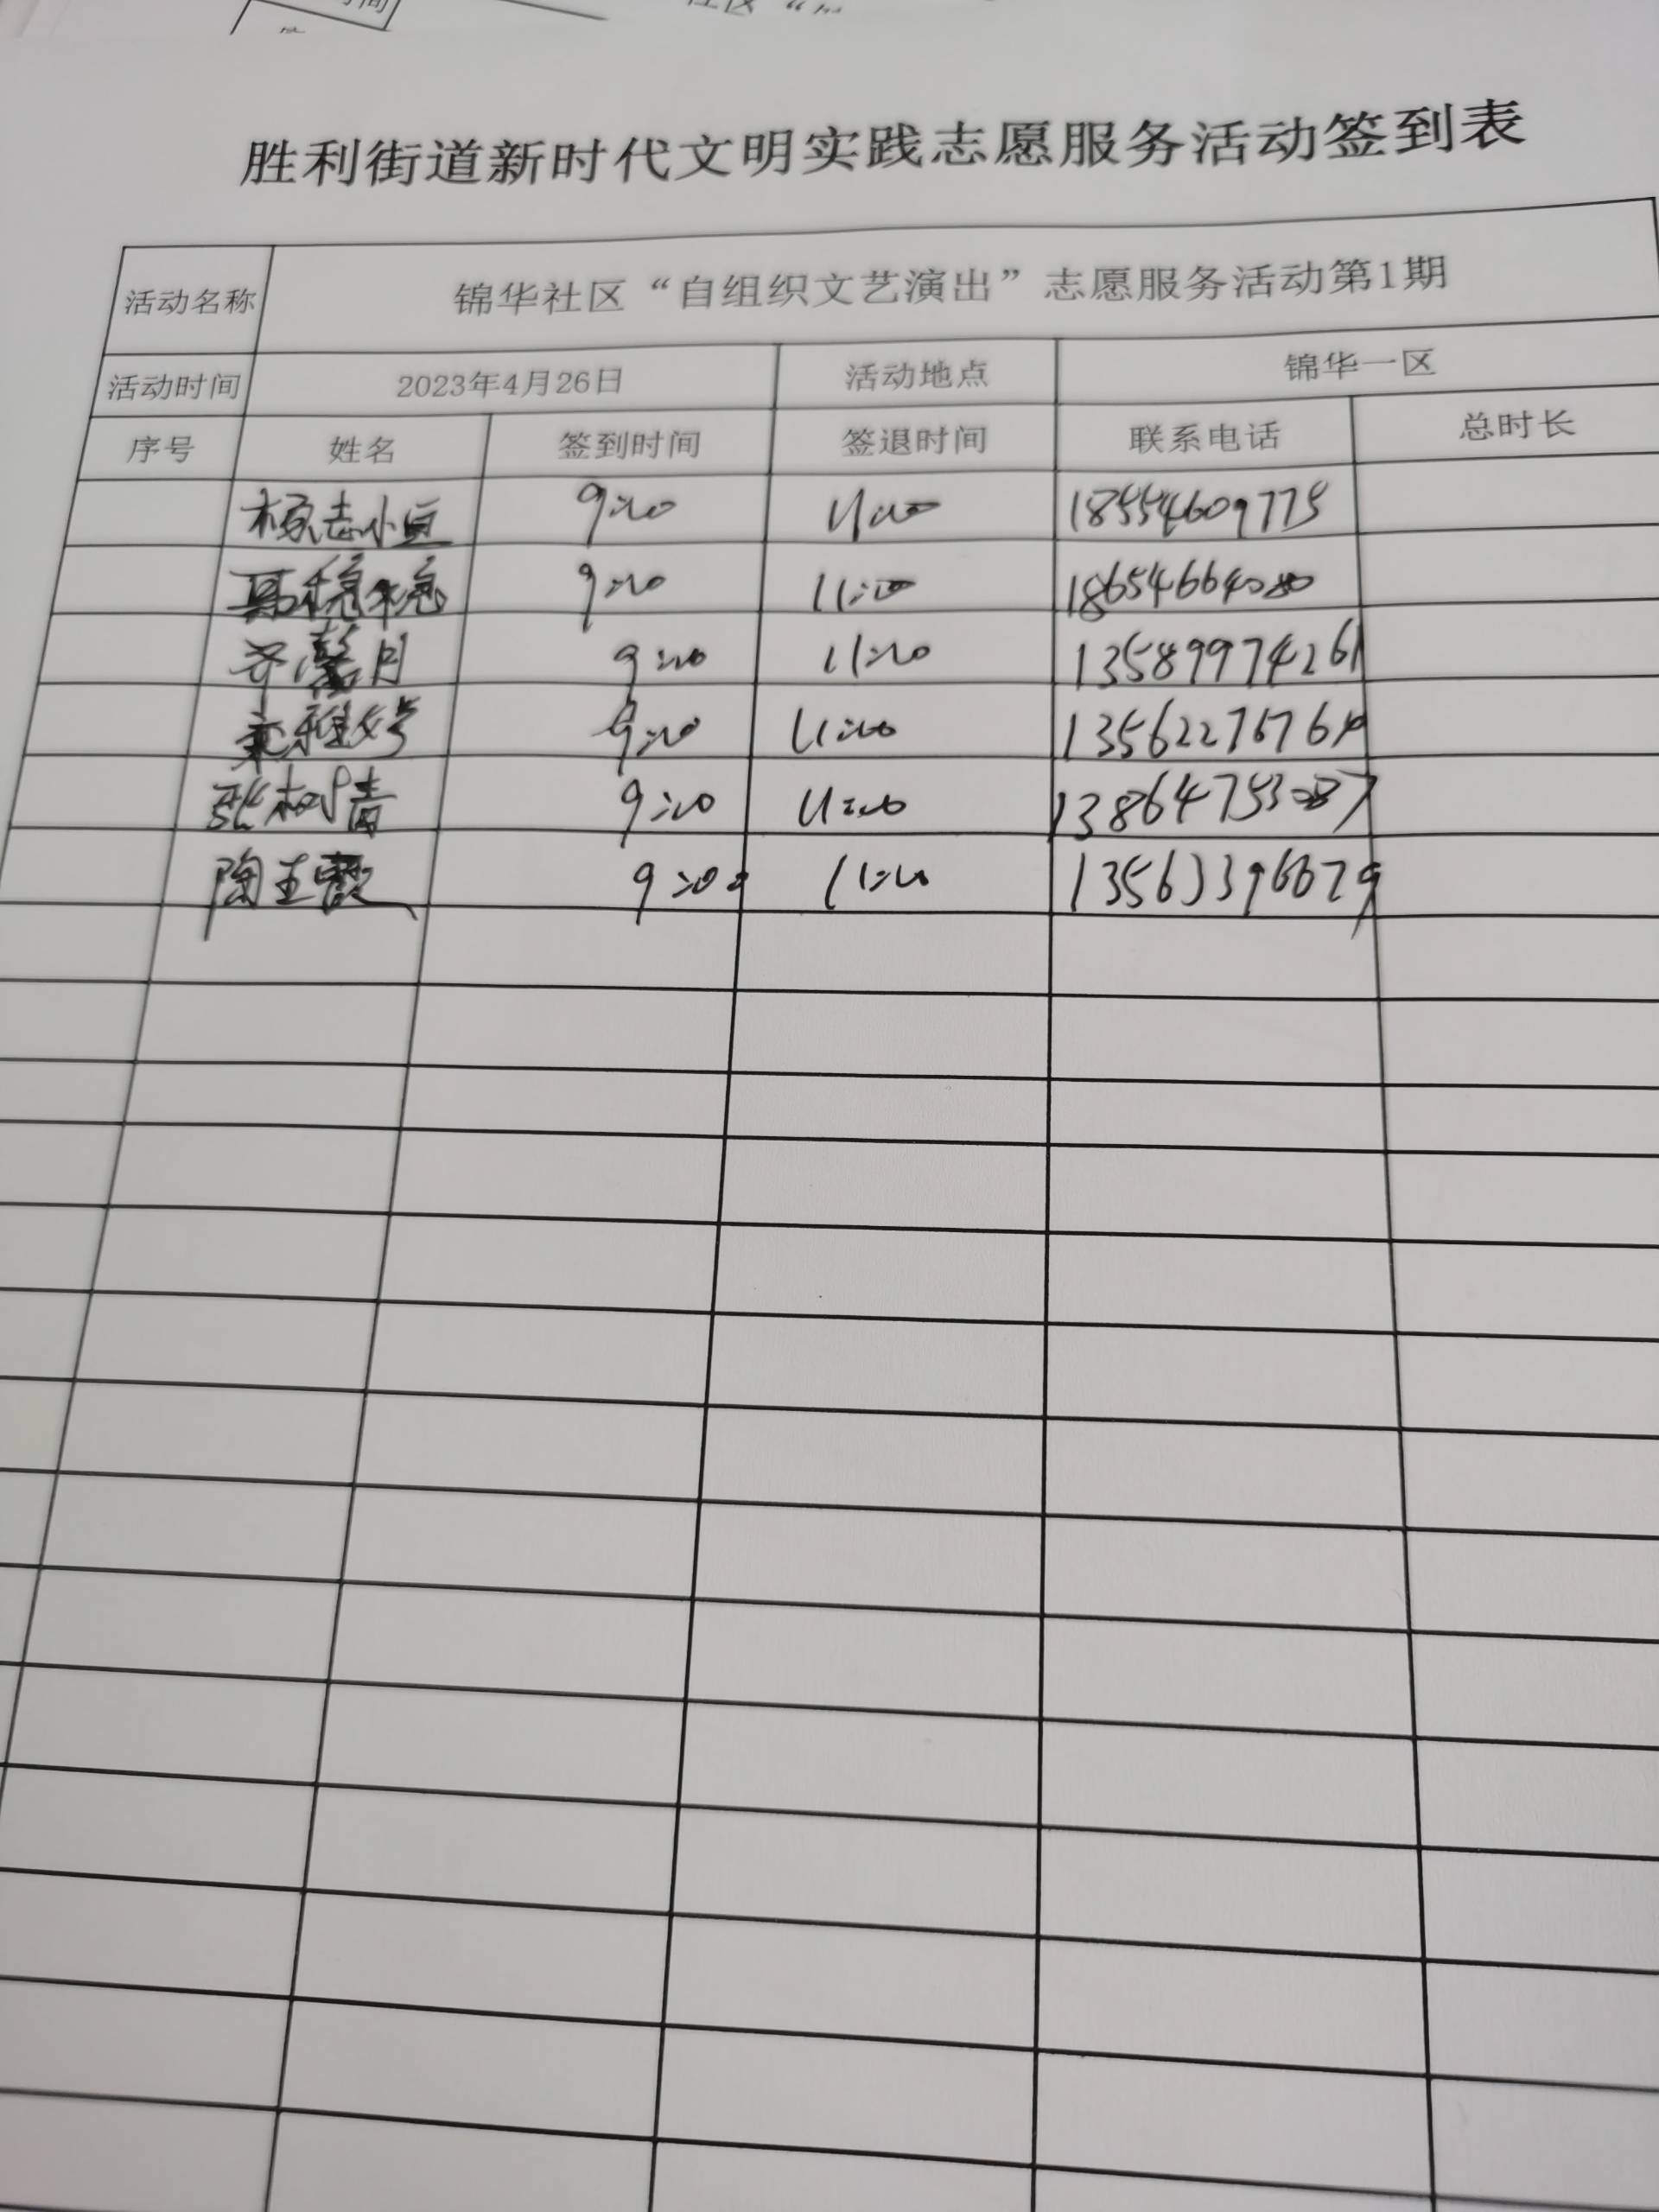 胜利街道新时代文明实践志愿服务活动签到表
活动名称 锦华社区“自组织文艺演出”志愿服务活动第1期
活动时间 2023年4月26日 活动地点 锦华一区
序号 姓名 签到时间 签退时间 联系电话 总时长
9:00 11:00 18554609775
9:00 11:00 18654664080
齐馨月 9:00 11:00 13589974261
9:00 11:00
张树青 9:00 11:00
陶玉霞 9:00 11:00 13563396679